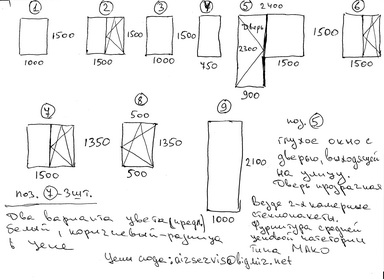 1 2 3 4 5 2400 6
1500 1500 1500 Дверь 2300 1500
1000 1500 1000 750 1500 1500
900
7 8 9
500
1350 1350 2100
1500 500
1000
поз. 5
глухое окно с
дверью, выходящей
на улицу.
Дверь прозрачная
Везде 2-х камерные
стеклопакеты.
Фурнитура средней
ценовой категории
типа МАКО
поз. 7 - 3шт.
Два варианта цвета (предв.)
Белый, коричневый - разница
в цене
Цены сюда: aizservis@bigmir.net